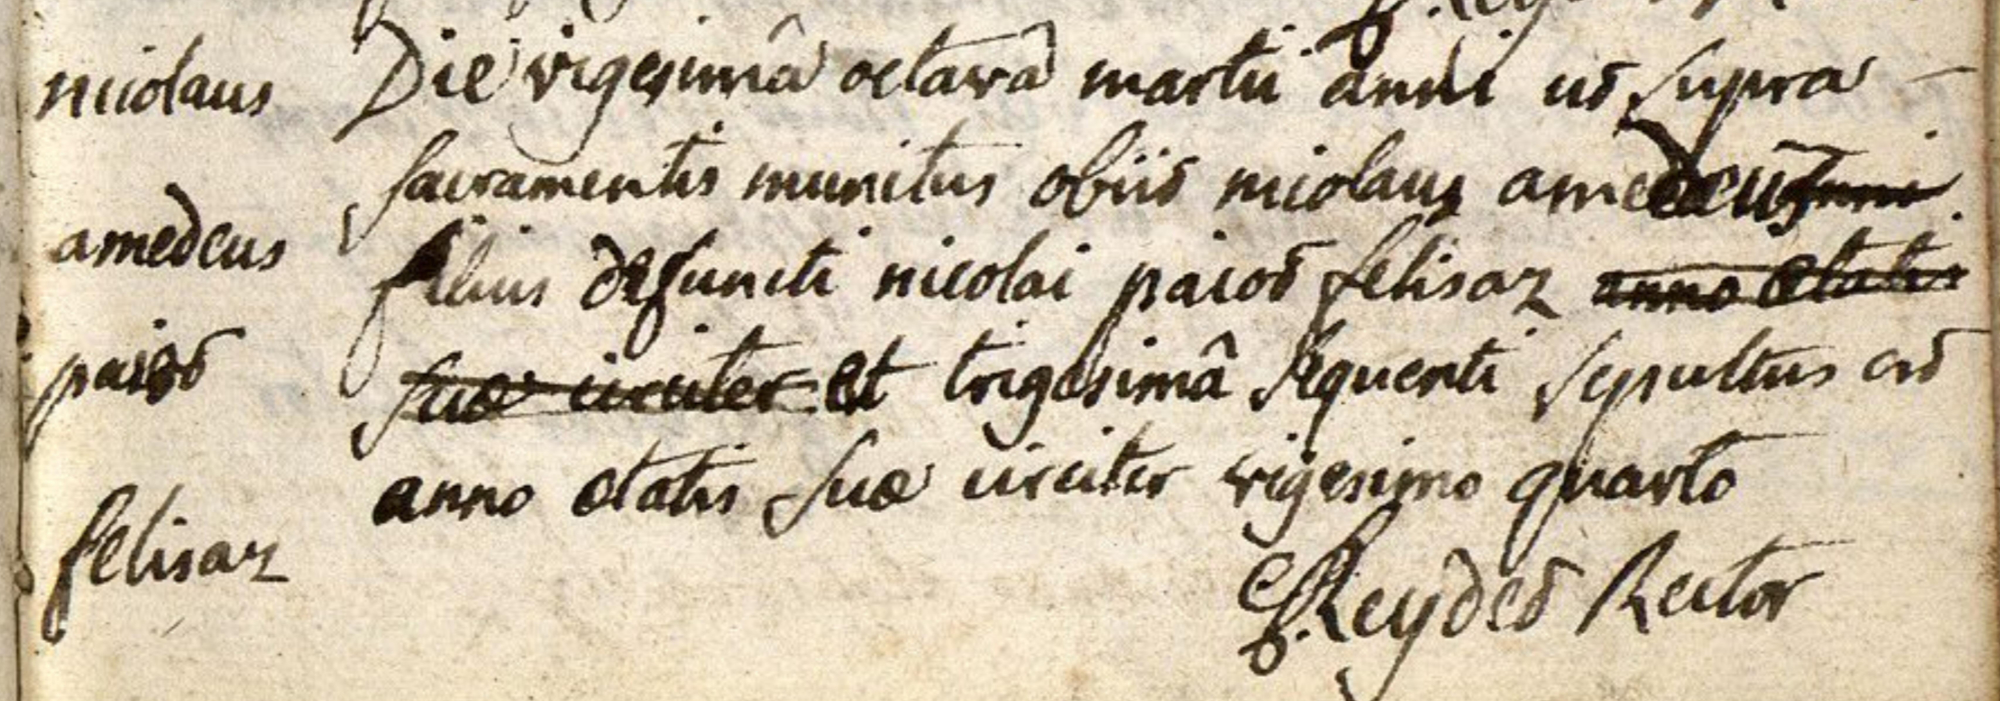 nicolaus
amedeus
paiot
felisaz
Die vigesimâ octavâ martii anni ut supra
sacramentis munitus obiit nicolaus amedeus
filius defuncti nicolai paiot felisaz anno etatis
suæ circiter et trigesimâ sequenti sepultus est
anno etatis suæ circiter vigesimo quarto
Reydet Rector